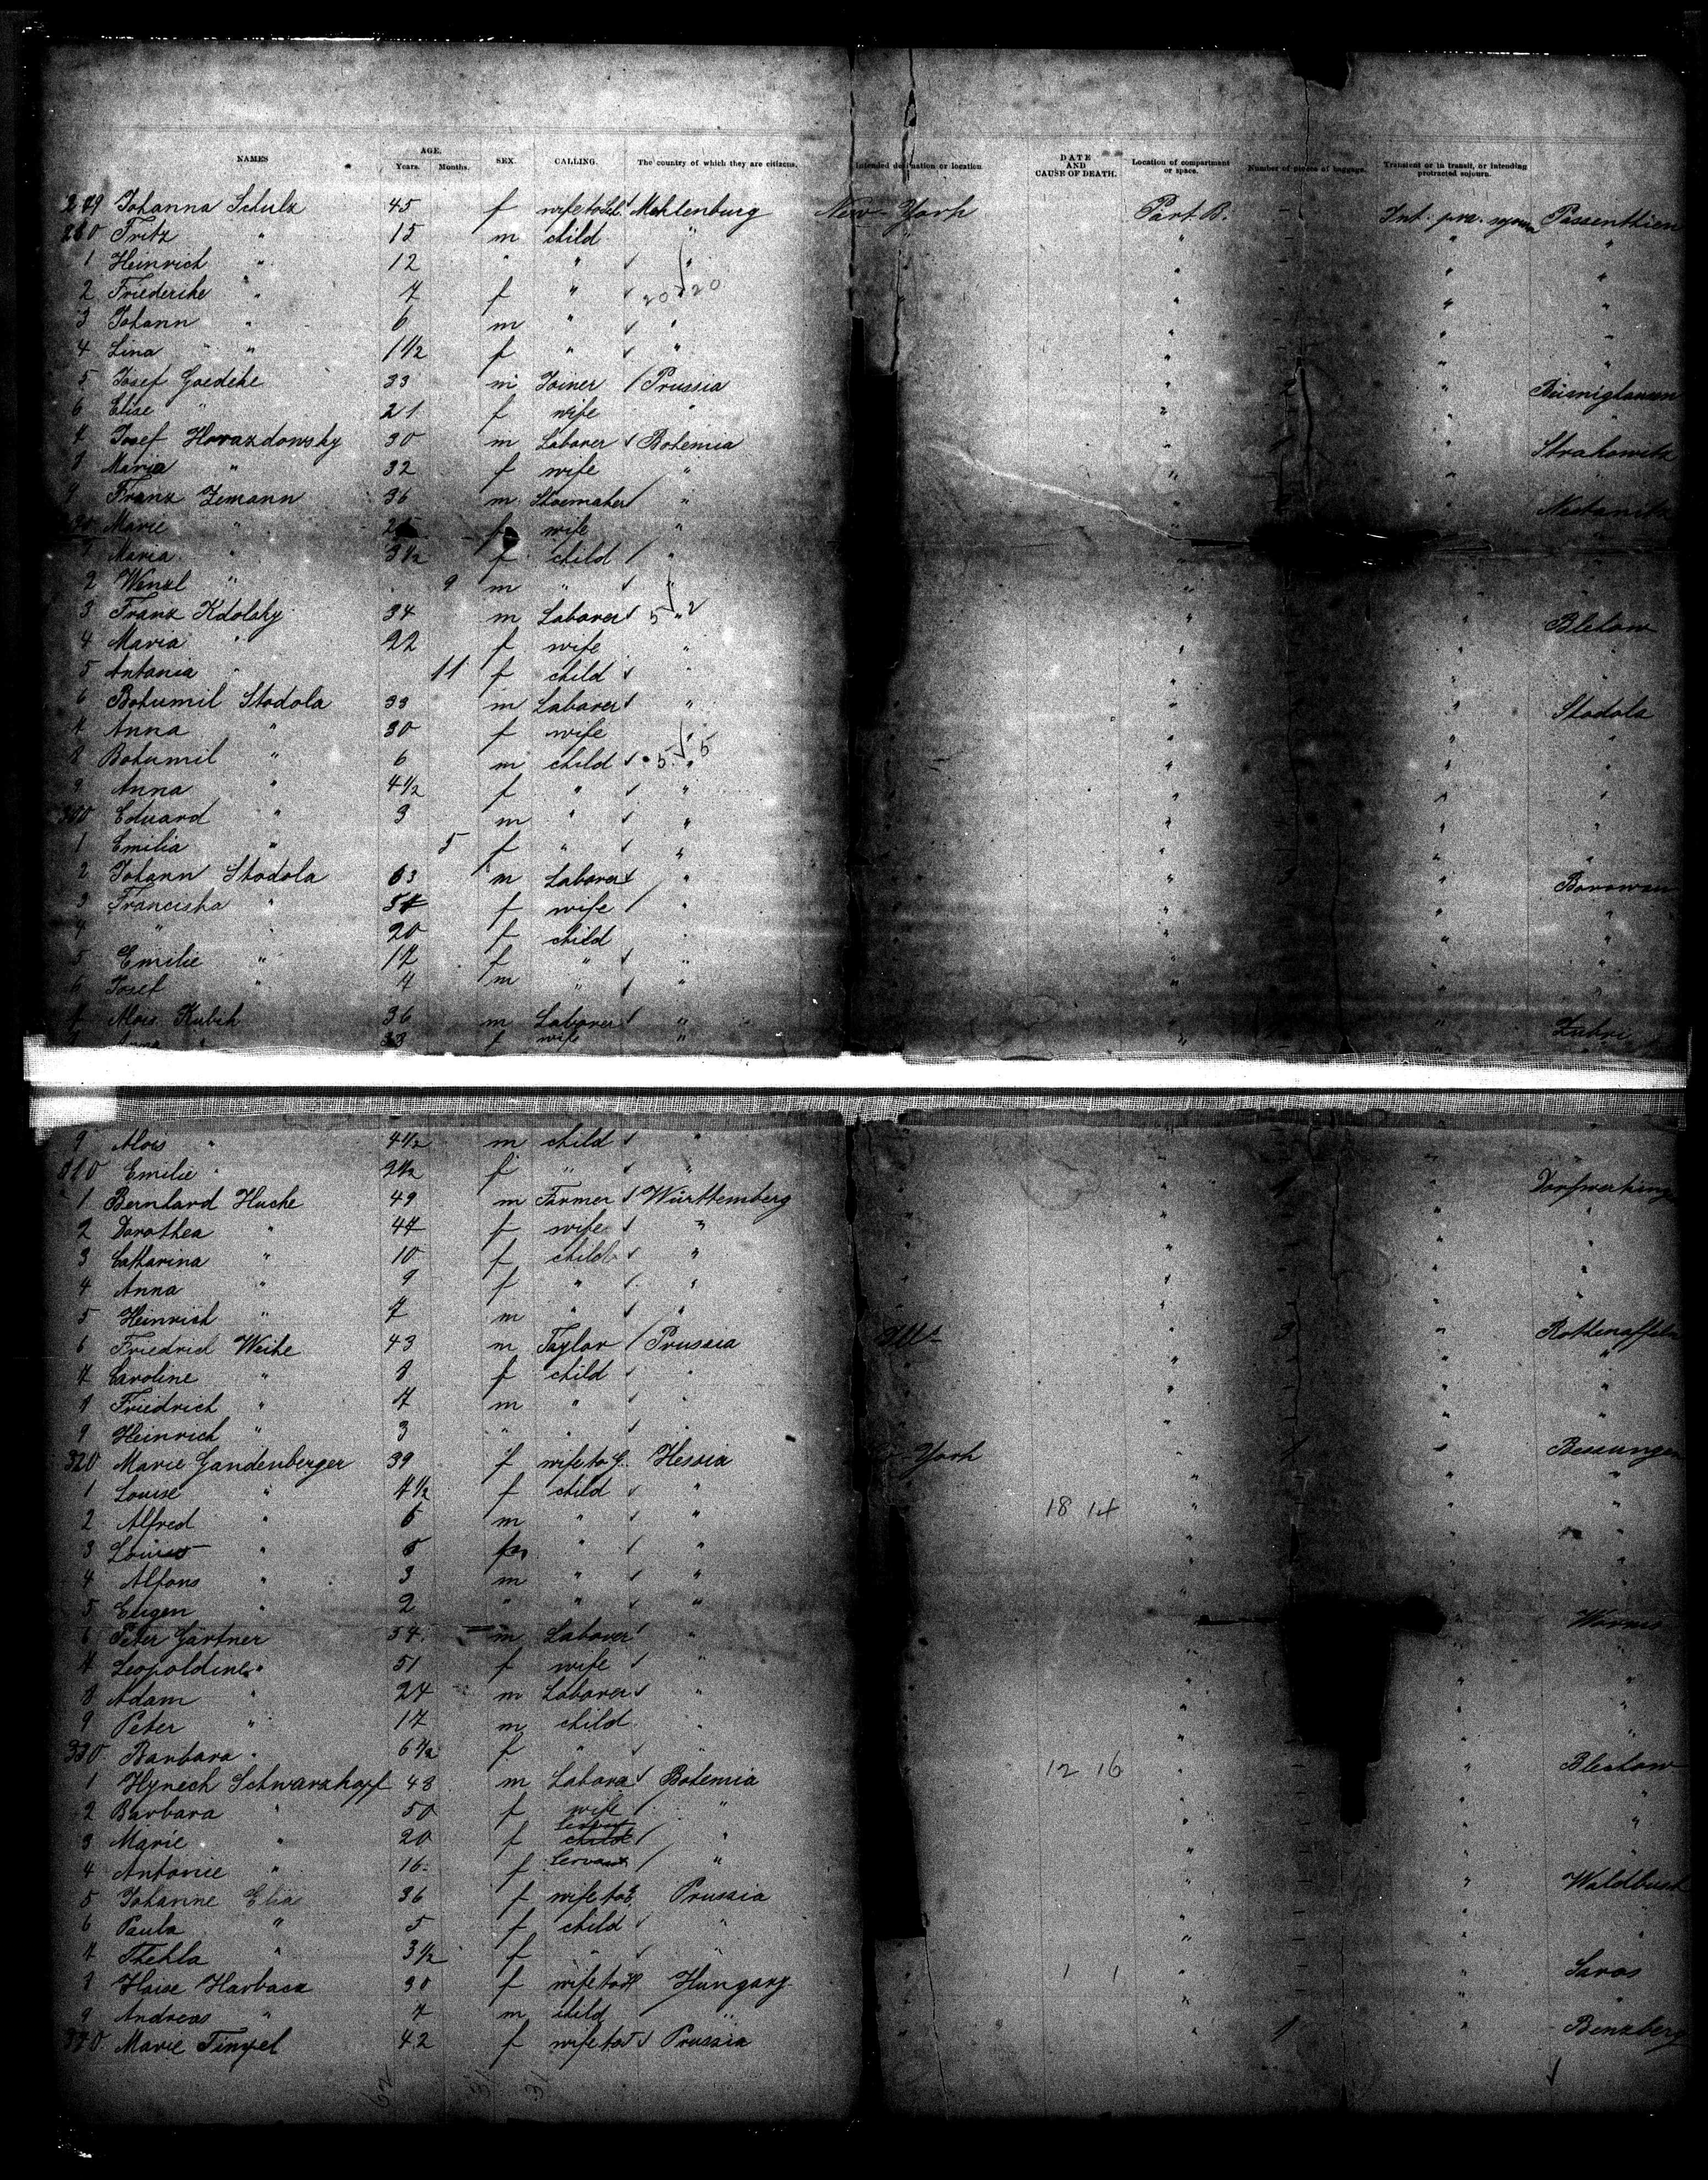 NAMES AGE. Years. Months. SEX. CALLING. The country of which they are citizens. Intended destination or location DATE AND CAUSE OF DEATH. Location of compartment or space. Number of pieces of baggage. Transient or in transit, or intending protracted sojourn.
279 Johanna Schulz 45 f wife to Sch. Mecklenburg New-York Part. B. - Int. pro. sojourn Passenthien
280 Fritz " 15 m child "
1 Heinrich " 12 " " "
2 Friederike " 7 f " 20 20
3 Johann " 6 m " "
4 Lina " 1 1/2 f " "
5 Josef Goedeke 33 m Joiner Prussia 2
6 Elise " 21 f wife "
7 Josef Horazdowsky 30 m Laborer Bohemia 1 Strakowitz
8 Maria " 32 f wife "
9 Franz Zemann 36 m Shoemaker "
290 Marie " f wife "
1 Maria " 3 1/2 f child "
2 Wenzl " 9 m " "
3 Franz Kdolsky 34 m Laborer 5 " 2 Blehow
4 Maria " 22 f wife "
5 Antonia " 11 f child "
6 Bohumil Stodola 33 m Laborer " Stodola
7 Anna " 30 f wife "
8 Bohumil " 6 m child 5 5
9 Anna " 4 1/2 f " "
300 Eduard " 3 m " "
1 Emilia " 5 f " "
2 Johann Stodola 63 m Laborer " 3 Borowan
3 Franciska " 57 f wife "
4 " " 20 f child "
5 Emilie " 17 f " "
6 Josef " 7 m " "
7 Alois Kubik 36 m Laborer " Zabri
8 Anna " 33 f wife "
9 Alois " 4 1/2 m child "
310 Emilie " 2 1/2 f " "
1 Bernhard Hucke 49 m Farmer Württemberg 1
2 Dorothea " 47 f wife "
3 Catharina " 10 f child "
4 Anna " 9 f " "
5 Heinrich " 7 m " "
6 Friedrich Weihe 43 m Taylor Prussia Ills. 3
7 Caroline " 8 f child "
8 Friedrich " 7 m " "
9 Heinrich " 3 " " "
320 Marie Gandenberger 39 f wife to G. Hessia York 1 Bessungen
1 Louise " 7 1/2 f child " 18 14
2 Alfred " 6 m " "
3 Louis " 5 m " "
4 Alfons " 3 m " "
5 Eugen " 2 " " "
6 Peter Gärtner 54 m Laborer " Worms
7 Leopoldine " 51 f wife "
8 Adam " 24 m Laborer "
9 Peter " 17 m child "
330 Barbara " 6 1/2 f " "
1 Hynech Schwarzkopf 48 m Laborer Bohemia 12 16 Blechow
2 Barbara " 50 f wife "
3 Marie " 20 f child "
4 Antonie " 16 f Servant "
5 Johanne Elias 36 f wife to E. Prussia Waldbush
6 Paula " 5 f child "
7 Thekla " 3 1/2 f " "
8 Haise Harbacz 30 f wife to H. Hungary 1 1 Saros
9 Andreas " 7 m child "
340 Marie Tinzel 42 f wife to T. Prussia 1 Benzberg
62 31 31